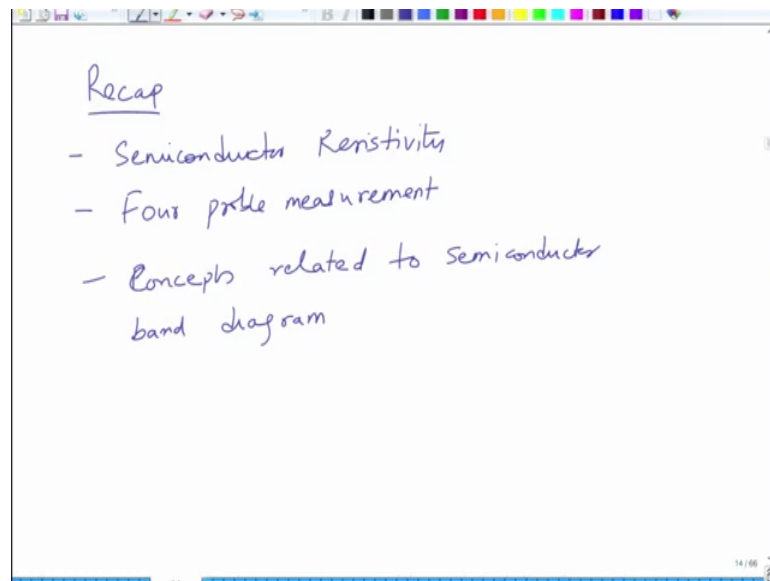 Recap
- Semiconductor Resistivity
- Four probe measurement
- Concepts related to semiconductor
band diagram
14/66